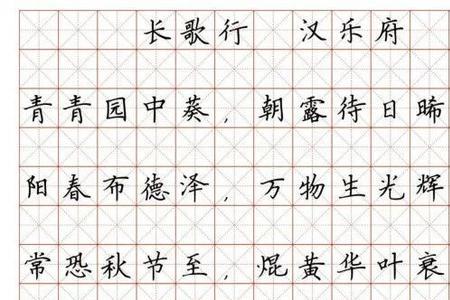 长歌行 汉乐府
青青园中葵，朝露待日晞
阳春布德泽，万物生光辉
常恐秋节至，焜黄华叶衰